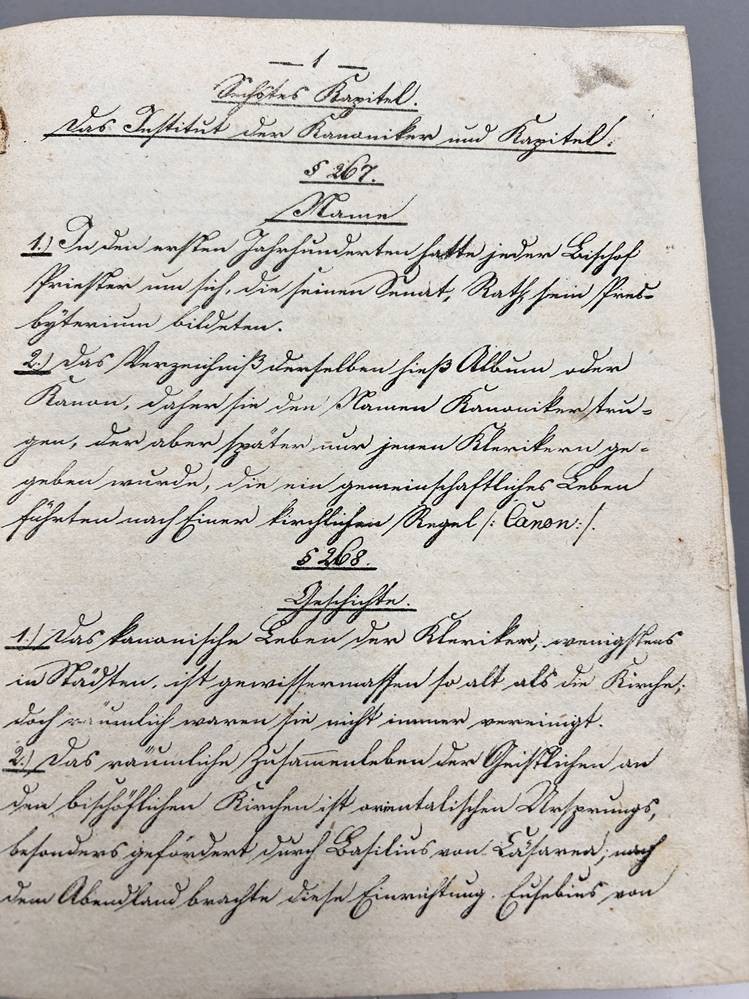 — 1 —
Sechstes Kapitel.
Das Institut der Kanoniker und Kapitel.
§ 267.
Name
1.) In den ersten Jahrhunderten hatte jeder Bischof
Priester um sich, die seinen Senat, Rath, sein Pres-
byterium bildeten.
2.) Das Verzeichniß derselben hieß Album oder
Kanon, daher sie den Namen Kanoniker tru-
gen, der aber später nur jenen Klerikern ge-
geben wurde, die ein gemeinschaftliches Leben
führten nach Einer kirchlichen Regel /: Canon :/.
§ 268.
Geschichte.
1.) Das kanonische Leben der Kleriker, wenigstens
in Städten, ist gewissermassen so alt als die Kirche;
doch räumlich waren sie nicht immer vereinigt.
2.) Das räumliche Zusammenleben der Geistlichen an
den bischöflichen Kirchen ist orientalischen Ursprungs,
besonders gefördert durch Basilius von Cäsarea; nach
dem Abendland brachte diese Einrichtung. Eusebius von